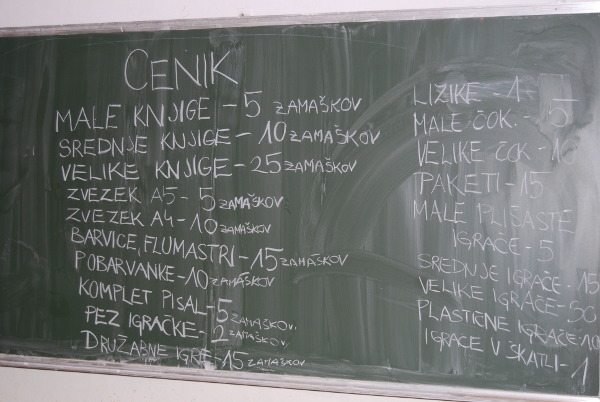 CENIK
MALE KNJIGE - 5 ZAMAŠKOV
SREDNJE KNJIGE - 10 ZAMAŠKOV
VELIKE KNJIGE - 25 ZAMAŠKOV
ZVEZEK A5 - 5 ZAMAŠKOV
ZVEZEK A4 - 10 ZAMAŠKOV
BARVICE, FLUMASTRI - 15 ZAMAŠKOV
POBARVANKE - 10 ZAMAŠKOV
KOMPLET PISAL - 5 ZAMAŠKOV
PEZ IGRAČKE - 2 ZAMAŠKOV
DRUŽABNE IGRE - 15 ZAMAŠKOV
LIZIKE - 1
MALE ČOK. - 5
VELIKE ČOK - 10
PAKETI - 15
MALE PLIŠASTE
IGRAČE - 5
SREDNJE IGRAČE - 15
VELIKE IGRAČE -
PLASTIČNE IGRAČE - 10
IGRAČE V ŠKATLI - 1